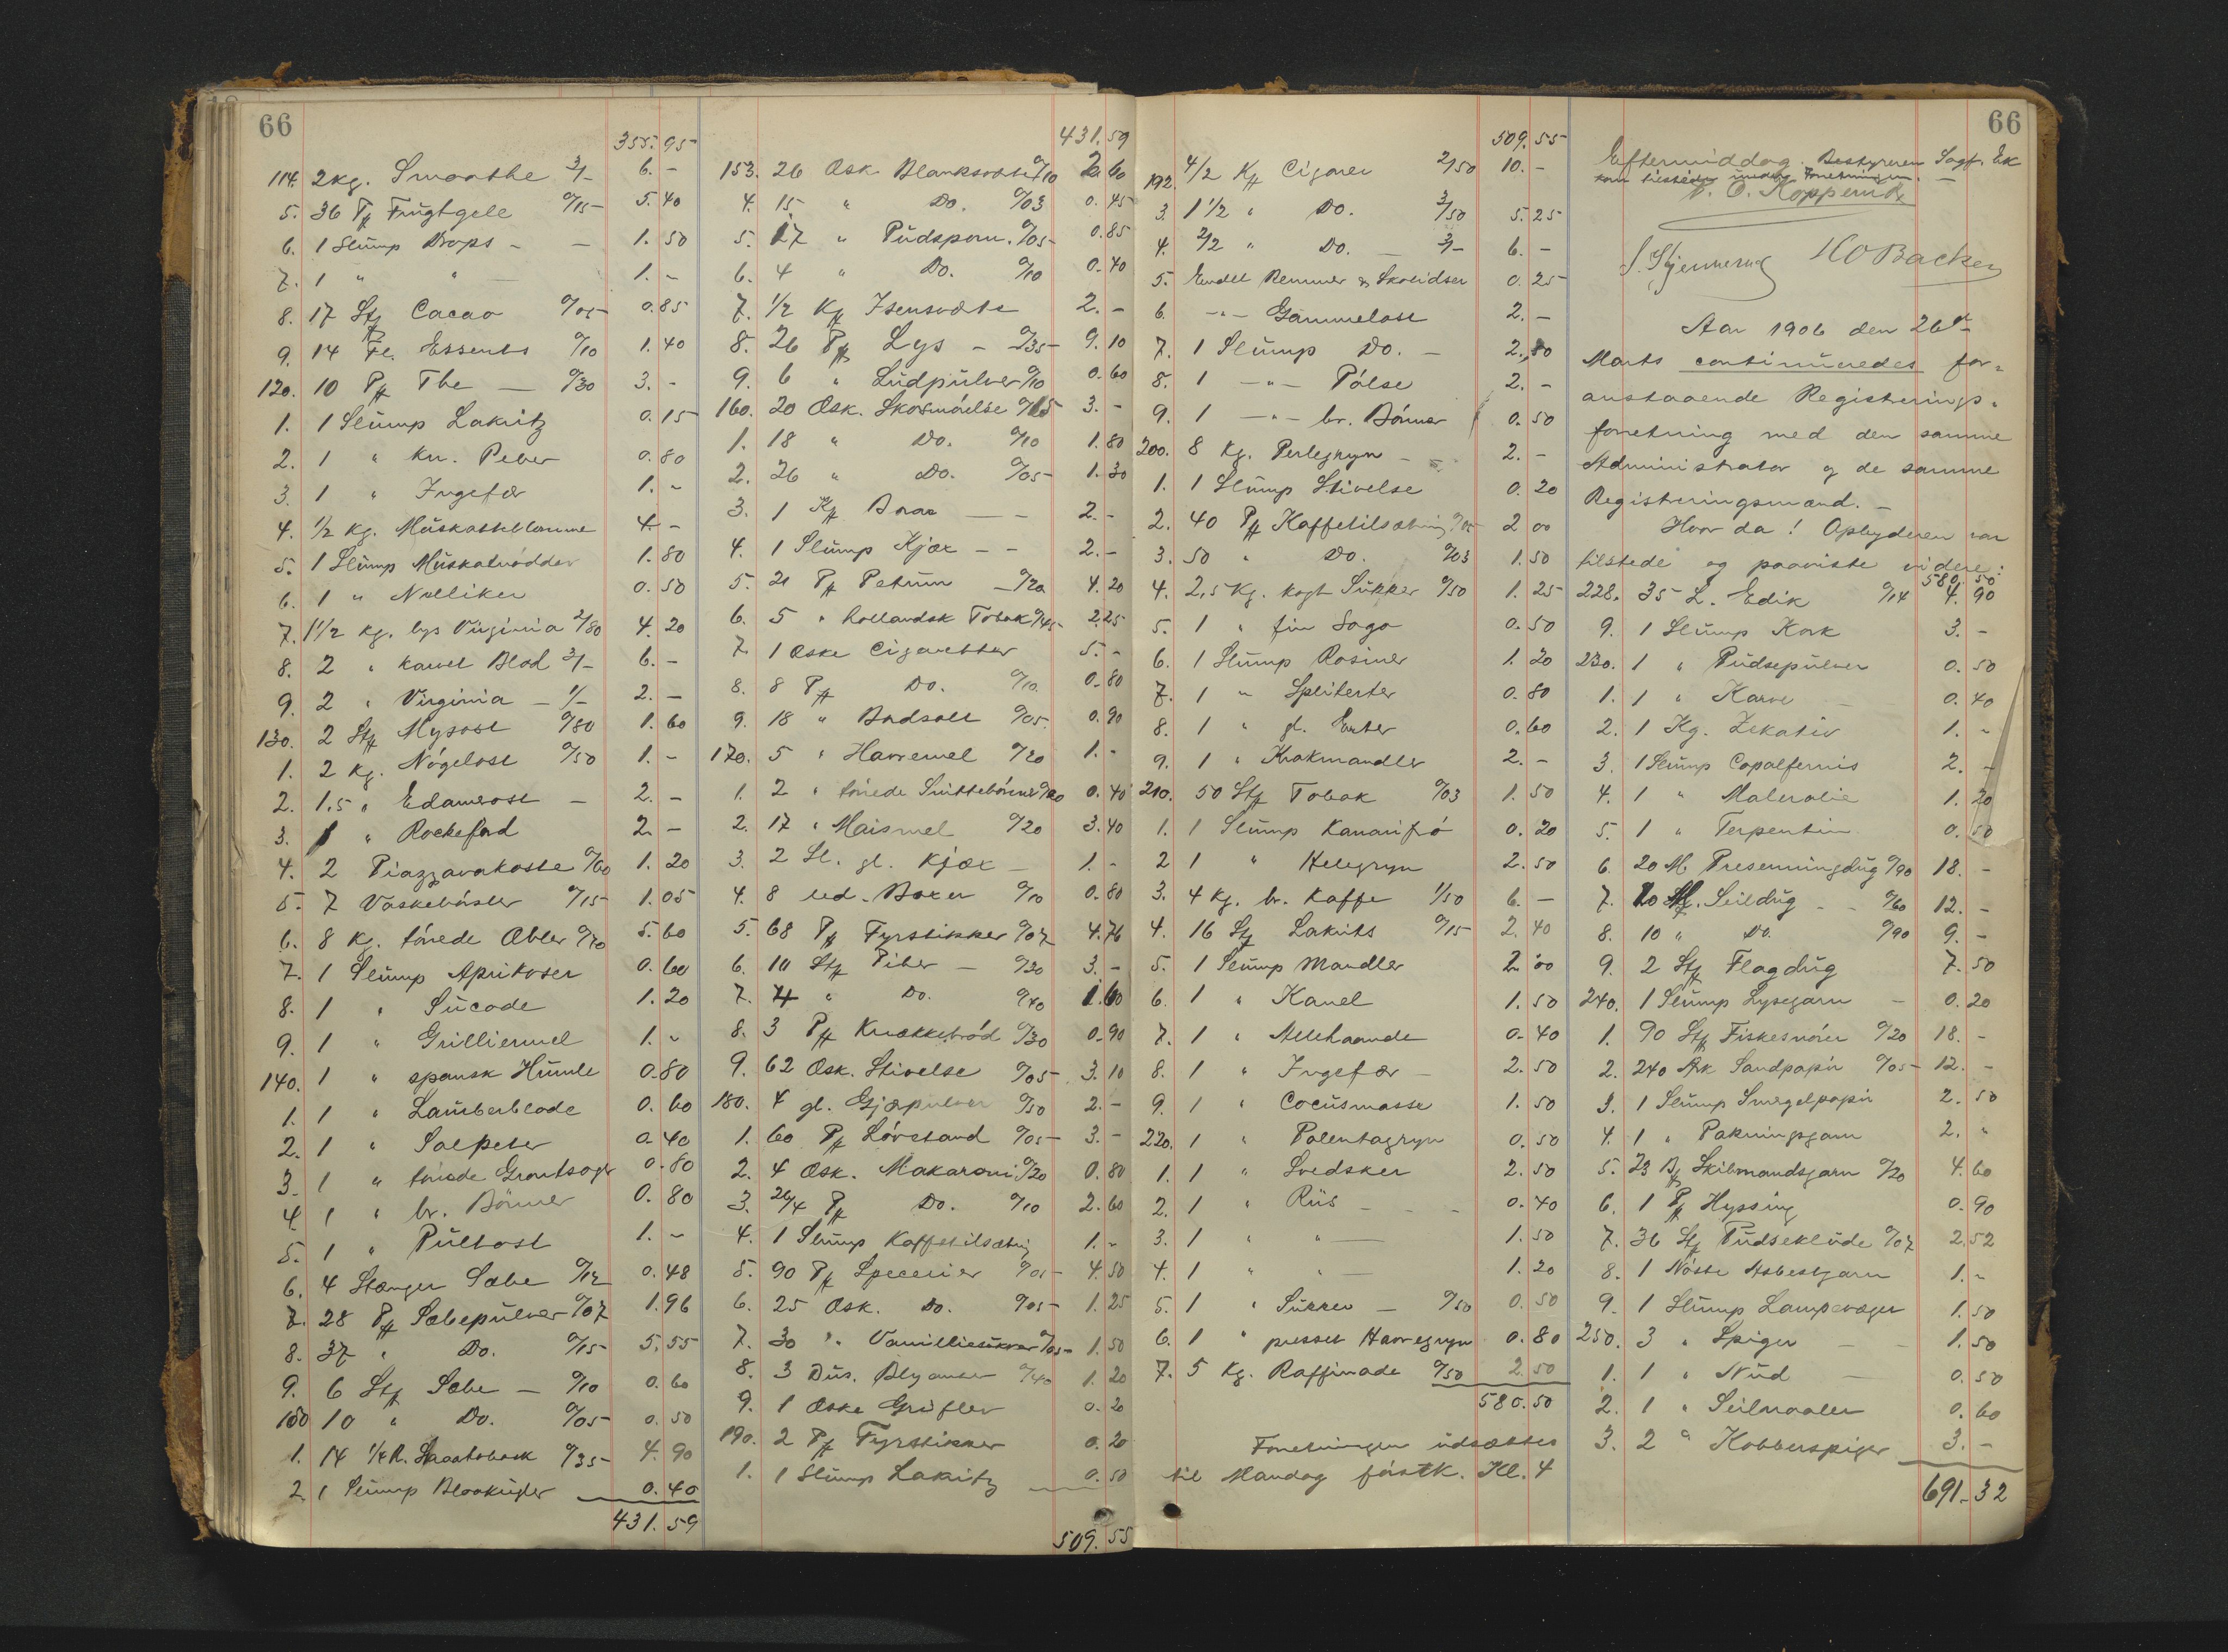 66
355.95
114. 2 kg. Smaathe 3/- 6.-
5. 36 Pk Frugtgele 0/15 5.40
6. 1 Slump Drops - - 1.50
7. 1 " " - 1.-
8. 17 Stk Cacao 0/05 0.85
9. 14 Fl. Essents 0/10 1.40
120. 10 Pk The - 0/30 3.-
1. 1 Slump Lakritz 0.15
2. 1 " kn. Peber 0.80
3. 1 " Ingefær 1.-
4. 1/2 kg. Muskatblomme 4.-
5. 1 Slump Muskatnødder 1.80
6. 1 " Nelliker 0.50
7. 1 1/2 kg. lys Virginia 2/80 4.20
8. 2 " karvet Blad 3/- 6.-
9. 2 " Virginia - 1/- 2.-
130. 2 Stk Mysost 0/80 1.60
1. 2 kg. Nøgelost 0/50 1.-
2. 1.5 " Edamerost - 2.-
3. 1 " Rockeford 2.-
4. 2 Piazzavakoste 0/60 1.20
5. 7 Vaskebørster 0/15 1.05
6. 8 kg. tørede Æbler 0/70 5.60
7. 1 Slump Aprikoser 0.60
8. 1 " Sucade 1.20
9. 1 " Grilliermel 1.-
140. 1 " spansk Humle 0.80
1. 1 " Laurberblade 0.60
2. 1 " Salpeter 0.40
3. 1 " tørede Grøntsager 0.80
4. 1 " br. Bønner 0.80
5. 1 " Pultost 1.-
6. 4 Stænger Sæbe 0/12 0.48
7. 28 Pk Sæbepulver 0/07 1.96
8. 37 " Do. 0/15 5.55
9. 6 Stk Sæbe - 0/10 0.60
150 10 " Do. 0/05 0.50
1. 14 1/4 R. Skraatobak 0/35 4.90
2. 1 Slump Blaakugler 0.40
431.59
431.59
153. 26 Æsk Blanksværte 0/10 2.60
4. 15 " Do. 0/03 0.45
5. 17 " Pudspom. 0/05 0.85
6. 4 " Do. 0/10 0.40
7. 1/2 Kg Isensværte 2.-
8. 26 Pk Lys - 0/35 9.10
9. 6 " Ludpulver 0/10 0.60
160. 20 Æsk. Skosmørelse 0/15 3.-
1. 18 " Do. 0/10 1.80
2. 26 " Do. 0/05 1.30
3. 1 Kg Borax - - 2.-
4. 1 Slump Kjæx - - 2.-
5. 21 Pk Petum - 0/20 4.20
6. 5 " hollandsk Tobak 0/45 2.25
7. 1 Æske Cigaretter 5.-
8. 8 Pk Do. 0/10 0.80
9. 18 " Badsalt 0/05 0.90
170. 5 " Havremel 0/20 1.-
1. 2 " tørede Snittebønner 0/20 0.40
2. 17 " Maismel 0/20 3.40
3. 2 Sl. gl. Kjæx - 1.-
4. 8 led. Boxer 0/10 0.80
5. 68 Pk Fyrstikker 0/07 4.76
6. 10 Stk Piber - 0/30 3.-
7. 4 " Do. 0/40 1.60
8. 3 Pk Knækkebrød 0/30 0.90
9. 62 Æsk. Stivelse 0/05 3.10
180. 4 gl. Gjærpulver 0/50 2.-
1. 60 Pk Løvstand 0/05 3.-
2. 4 Æsk. Makaroni 0/20 0.80
3. 26/4 Pk Do. 0/10 2.60
4. 1 Slump Kaffetilsætning 1.-
5. 90 Pk Specerier 0/05 4.50
6. 25 Æsk. Do. 0/05 1.25
7. 30 " Vanilliesukker 0/05 1.50
8. 3 Dus. Blyanter 0/40 1.20
9. 1 Æske Grifler 0.20
190. 2 Pk Fyrstikker 0.20
1. 1 Slump Lakritz 0.50
509.55
66
509.55
192. 4/2 Kg Cigarer 2/50 10.-
3. 1 1/2 " Do. 3/50 5.25
4. 2/2 " Do. - 3/- 6.-
5. Endel Remmer & Skolidser 0.25
6. -"- Gammelost 2.-
7. 1 Slump Do. - 2.50
8. 1 -"- Pølse 2.-
9. 1 -"- br. Bønner 0.50
200. 8 Kg. Perlegryn - - 2.-
1. 1 Slump Stivelse 0.20
2. 40 Pk Kaffetilsætning 0/05 2.00
3. 50 " Do. 0/03 1.50
4. 2,5 Kg. kogt Sukker 0/50 1.25
5. 1 " fin Sago 0.50
6. 1 Slump Rosiner 1.20
7. 1 " Spliterter 0.80
8. 1 " gl. Erter 0.60
9. 1 " Krakmandler 2.-
210. 50 Stk Tobak 0/03 1.50
1. 1 Slump Kanarifrø 0.20
2 1 " Helegryn 2.50
3. 4 Kg. br. Kaffe 1/50 6.-
4. 16 Stk Lakrits 0/15 2.40
5. 1 Slump Mandler 2.00
6. 1 " Kanel 1.50
7. 1 " Allehaande 0.40
8. 1 " Ingefær - 2.50
9. 1 " Cocusmasse 1.50
220. 1 " Polentagryn 0.50
1. 1 " Svedsker 2.50
2. 1 " Riis - - - 0.40
3. 1 " " - 1.50
4. 1 " " - 1.20
5. 1 " Sukker - 0/50 0.50
6. 1 " presset Havregryn 0.80
7. 5 Kg. Raffinade 0/50 2.50
580.50
Forretningen udsættes
til Mandag førstk. Kl. 4
66
Eftermiddag. Bestyreren Sagf. Ek
var tilstede under Forretningen. -
O. Koppernæs
S. Stjernerud HO Backer
Aar 1906 den 26de
Marts continueredes for-
anstaaende Registrerings-
forretning med den samme
Administrator og de samme
Registreringsmænd. -
Hvor da! Opbyderen var
tilstede og paaviste videre:
580.50
228. 35 L. Edik 0/14 4.90
9. 1 Slump Kork 3.-
230. 1 " Pudsepulver 0.50
1. 1 " Karve - 0.40
2. 1 Kg. Zekativ 1.-
3. 1 Slump Copalfernis 2.-
4. 1 " Malerolie 1.20
5. 1 " Terpentin 0.50
6. 20 M Presenningdug 0/90 18.-
7. 20 M. Seildug - - 0/60 12.-
8. 10 " Do. 0/90 9.-
9. 2 Stk Flagdug 7.50
240. 1 Slump Lysegarn - 0.20
1. 90 Stk Fiskesnører 0/20 18.-
2. 240 Ark Sandpapir 0/05 12.-
3. 1 Slump Smergelpapir 2.50
4. 1 " Pakningsgarn 2.-
5. 23 B. Skibmandsgarn 0/20 4.60
6. 1 Pk Hyssing 0.90
7. 36 Stk Pudseklude 0/07 2.52
8. 1 Nøste Asbestgarn 1.-
9. 1 Slump Lampevæger 1.50
250. 3 " Spiger - - 1.50
1. 1 " Nud - 0.50
2. 1 " Seilnaaler 0.60
3. 2 " Kobberspiger 3.-
691.32